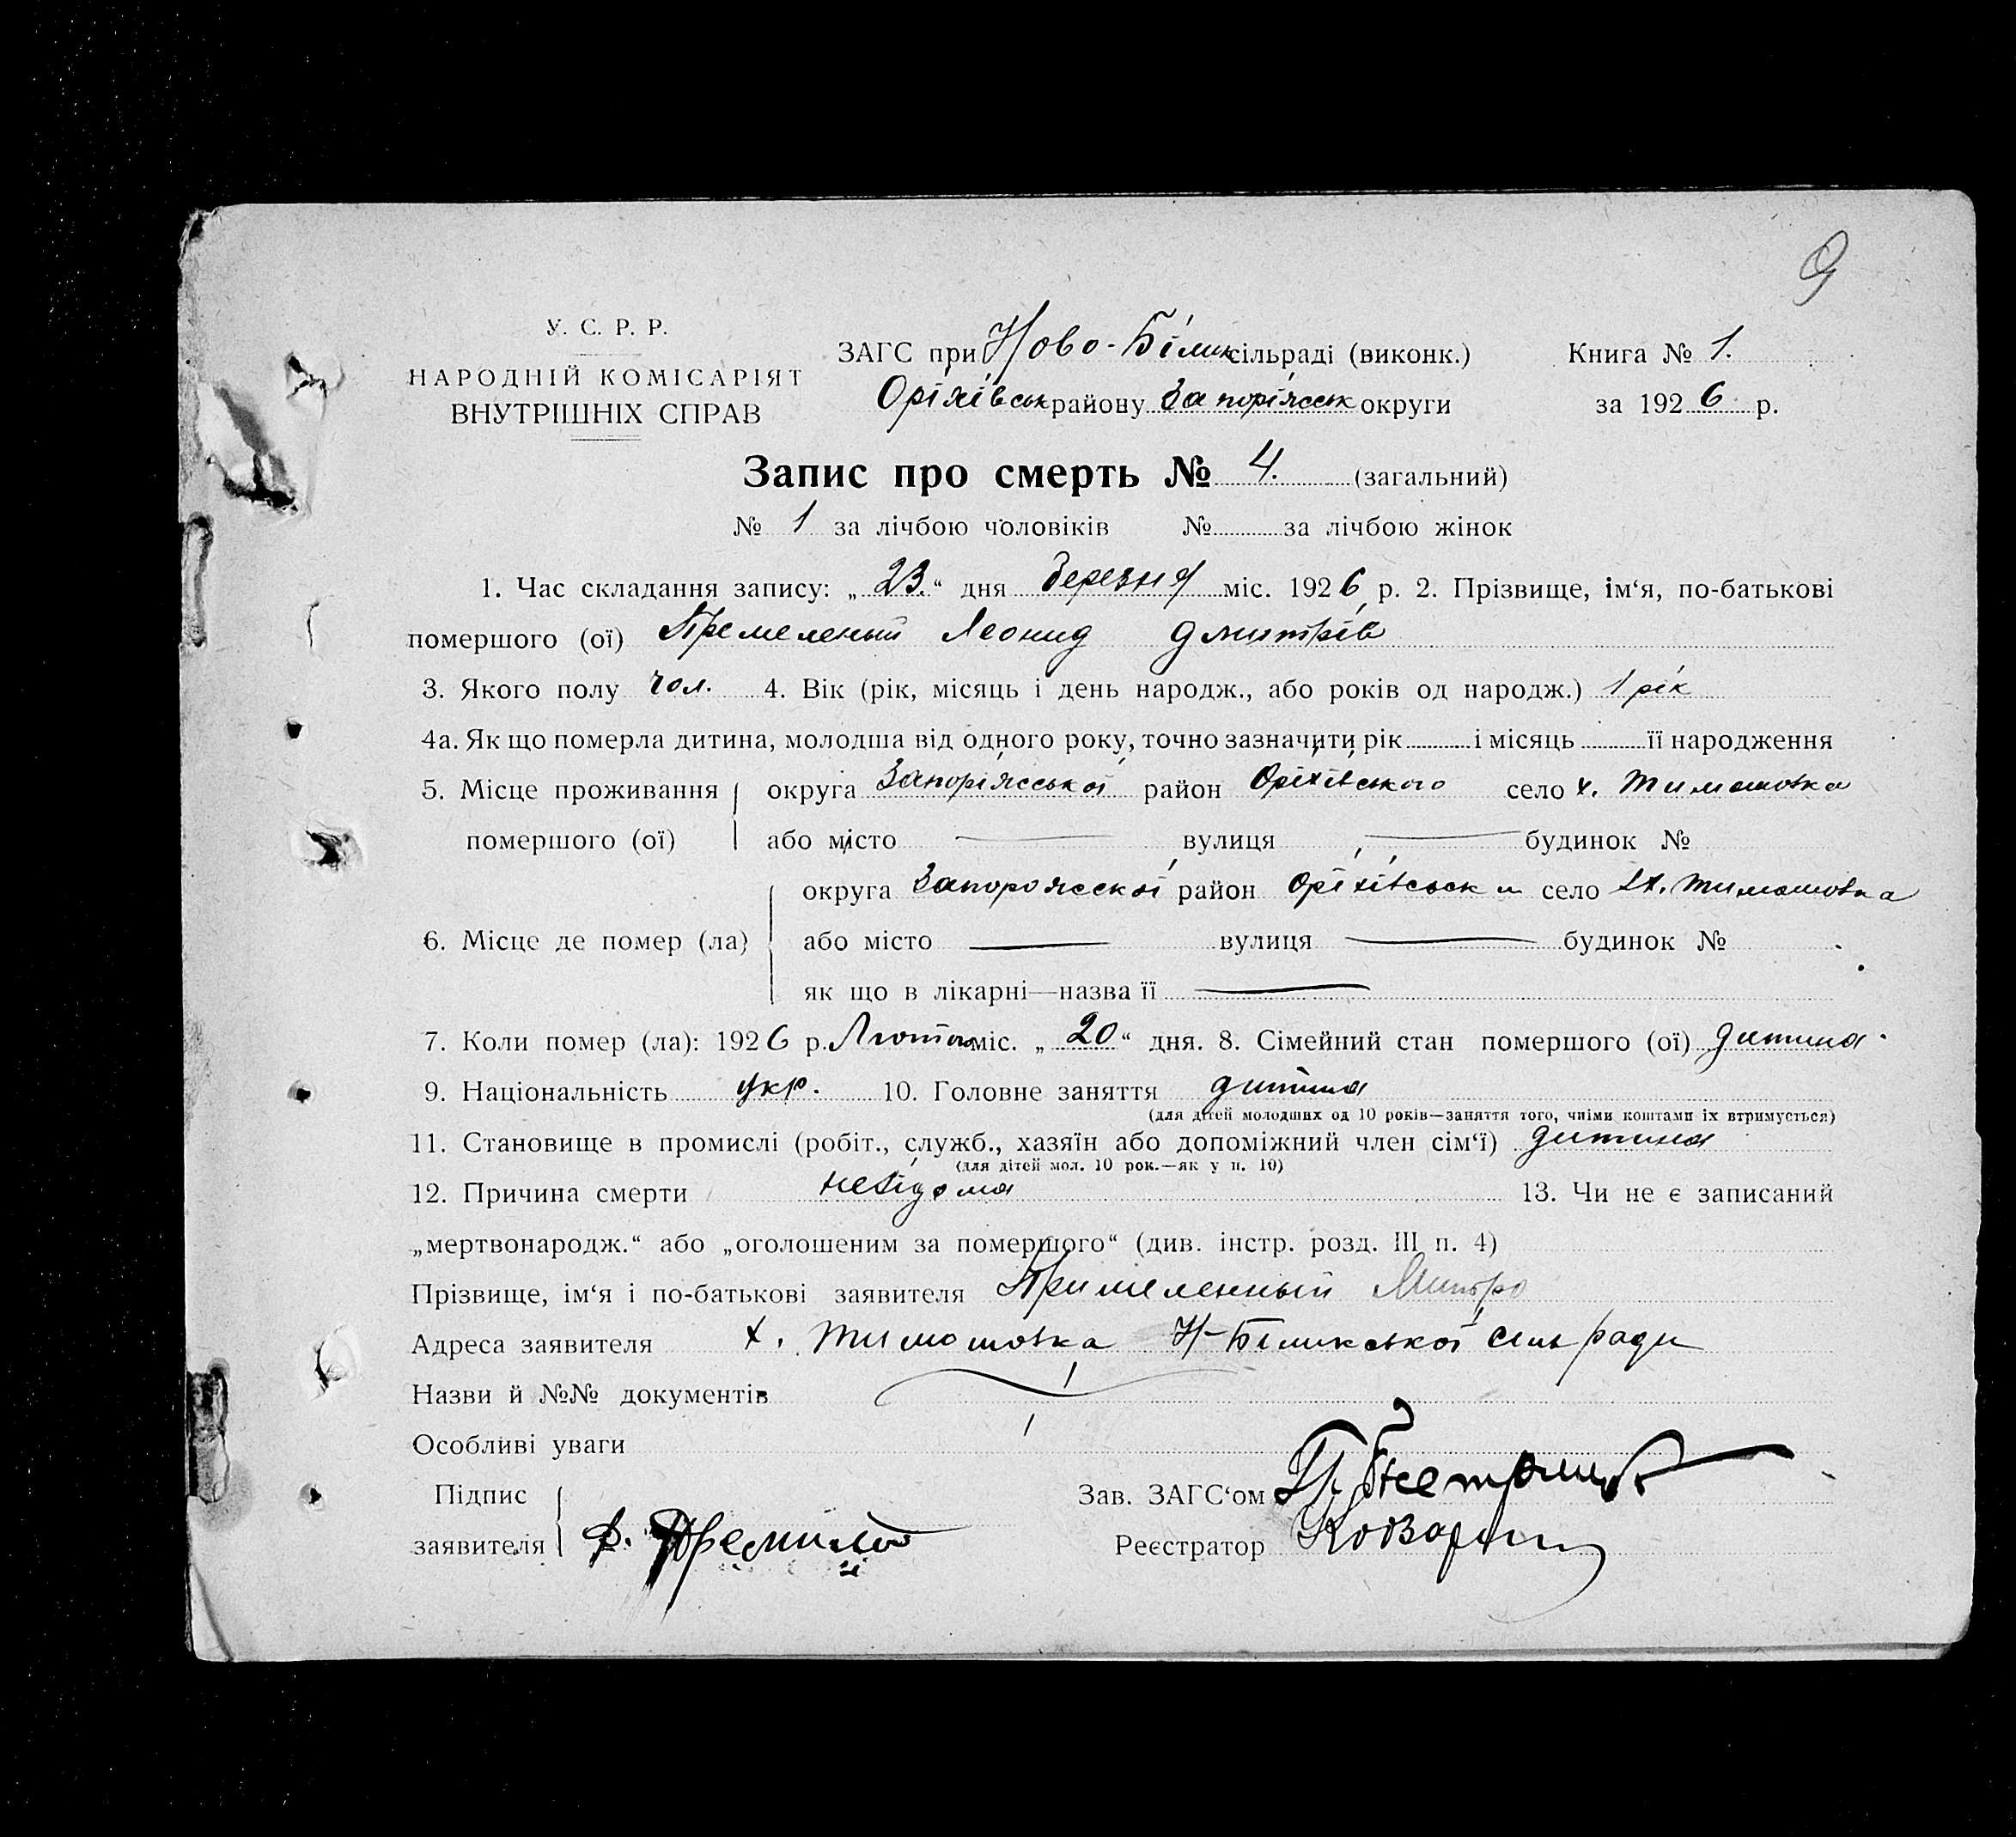 9
У. С. Р. Р.
НАРОДНІЙ КОМІСАРІЯТ
ВНУТРІШНІХ СПРАВ
ЗАГС при Ново-Білик сільраді (виконк.)
Оріхівськ району Запоріжськ округи
Книга № 1.
за 1926 р.
Запис про смерть № 4. (загальний)
№ 1 за лічбою чоловіків № за лічбою жінок
1. Час складання запису: „23.“ дня березня міс. 1926 р. 2. Прізвище, ім‘я, по-батькові
помершого (ої) Премеленый Леонид Дмитрів
3. Якого полу чол. 4. Вік (рік, місяць і день народж., або років од народж.) 1 рік
4а. Як що померла дитина, молодша від одного року, точно зазначити рік і місяць її народження
5. Місце проживання округа Запоріжської район Оріхівського село х. Тимошовка
помершого (ої) або місто вулиця будинок №
округа Запорожской район Оріхівськ село х. Тимошовка
6. Місце де помер (ла) або місто вулиця будинок №
як що в лікарні—назва її
7. Коли помер (ла): 1926 р. Лютого міс. „20“ дня. 8. Сімейний стан помершого (ої) дитина
9. Національність укр. 10. Головне заняття дитина
(для дітей молодших од 10 років—заняття того, чиїми коштами їх втримується)
11. Становище в промислі (робіт., служб., хазяїн або допоміжний член сім‘ї) дитина
(для дітей мол. 10 рок.—як у п. 10)
12. Причина смерти невідома 13. Чи не є записаний
„мертвонародж.“ або „оголошеним за помершого“ (див. інстр. розд. III п. 4)
Прізвище, ім‘я і по-батькові заявителя Примеленный Митро
Адреса заявителя х. Тимошовка Н-Біликської сільради
Назви й №№ документів
Особливі уваги
Підпис
заявителя
Зав. ЗАГС‘ом
Реєстратор